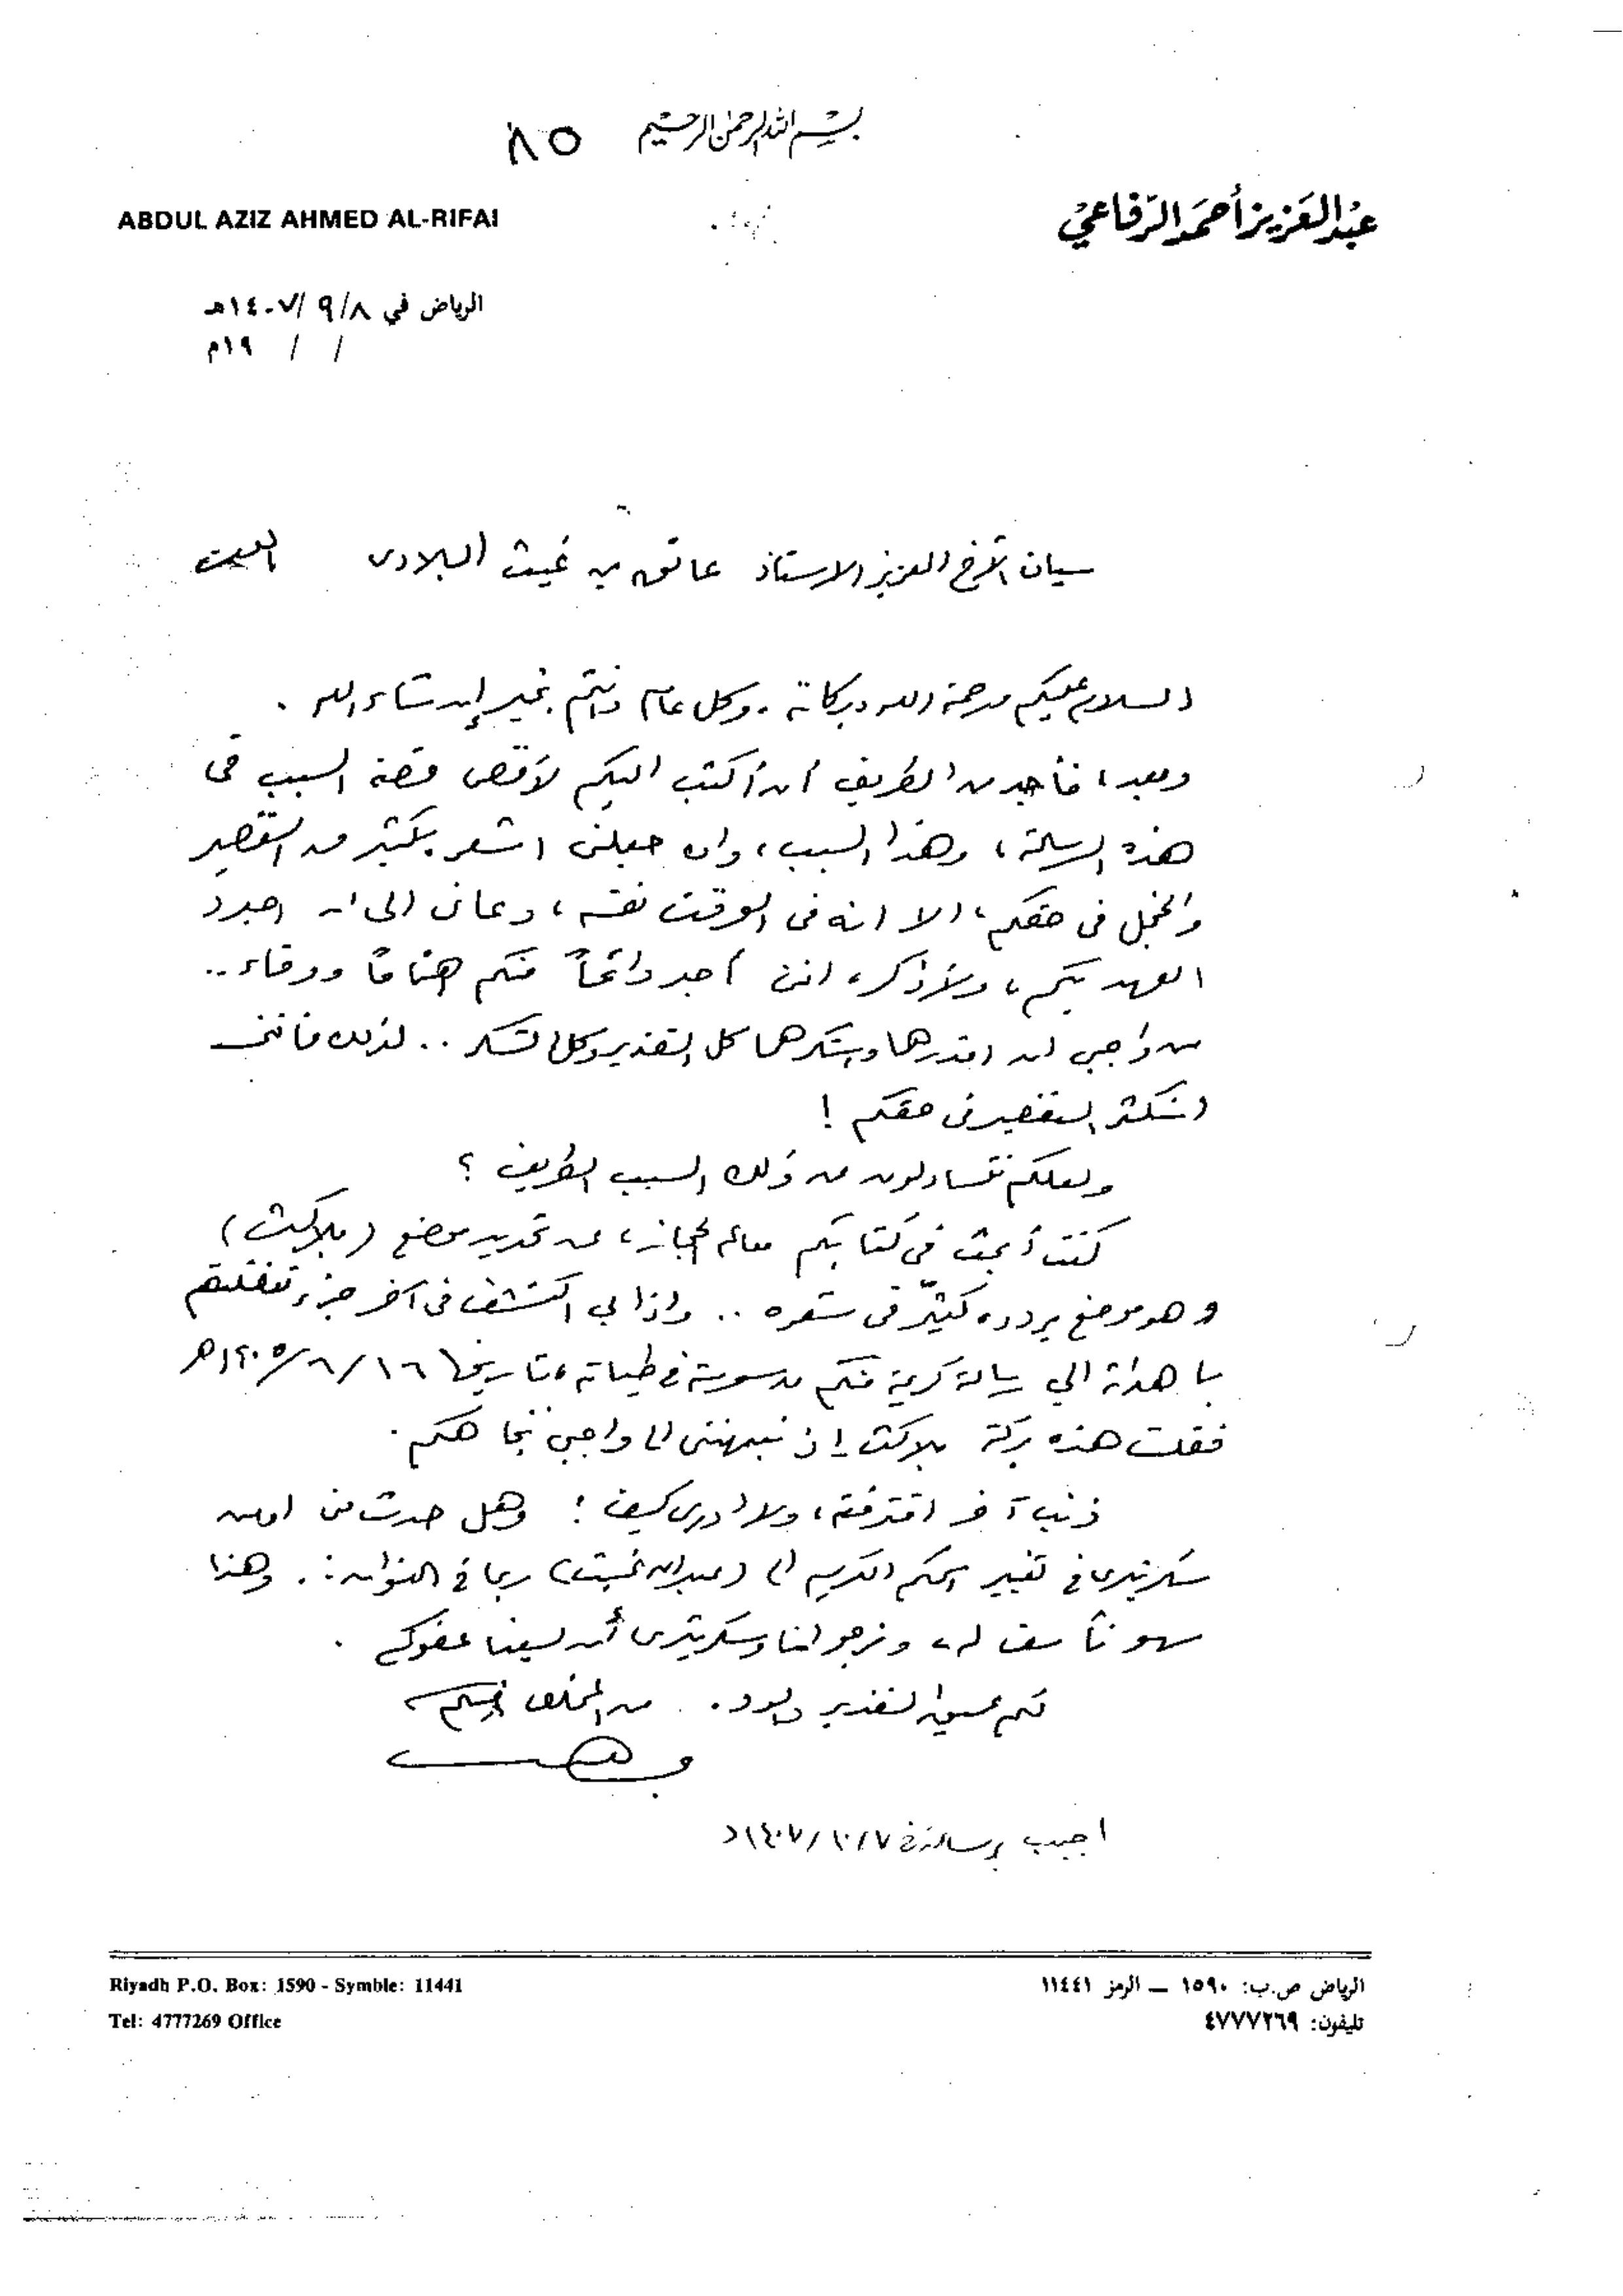 بسم الله الرحمن الرحيم
٨٥
ABDUL AZIZ AHMED AL-RIFAI
عبد العزيز أحمد الرفاعي
الرياض في ٩/٨ /١٤٠٧هـ
/ / ١٩م
الأخ العزيز الاستاذ عاتق بن غيث البلادى
السلام عليكم ورحمة الله وبركاته . وكل عام وانتم بخير إن شاء الله .
وبعد ، فأجد من الطريف أن أكتب اليكم لأقص قصة السبب فى
هذه الرسالة ، وهذا السبب ، وان جعلنى اشعر بكثير من التقصير
والخجل فى حقكم ، الا انه فى الوقت نفسه ، دعانى الى ان اجدد
العهد بكم ، ولأذكر اننى أجد دائماً منكم ووفاء ..
من واجبي ان اقدرهما واشكرهما كل التقدير وكل الشكر .. لذلك
التقصير فى حقكم !
ولعلكم تتساءلون عن ذلك السبب الطريف ؟
كنت أبحث في كتابكم معالم الحجاز ، عن تحديد موضع (بلاكث)
وهو موضع يردده كثيّر فى شعره .. واذا بي اكتشف فى آخر جزء تفضلتم
باهدائه الي رسالة كريمة منكم مدسوسة في طياته ، تاريخها
فقلت هذه بركة بلاكث إذ نبهتنى الى واجبي تجاهكم .
ذنب آخر اقترفته ، ولا ادرى كيف ! وهل حدث من او من
سكرتيرى في تغيير اسمكم الكريم الى ربما في العنوان .. وهذا
سهو نأسف له ، ونرجو انا وسكرتيرى أن يسعنا عفوكم .
لكم عميق التقدير والود . من المخلص
اجيب برسالة في ١٤٠٧/١٠/٧
Riyadh P.O. Box: 1590 - Symble: 11441
Tel: 4777269 Office
الرياض ص.ب: ١٥٩٠ ــ الرمز ١١٤٤١
تليفون: ٤٧٧٧٢٦٩